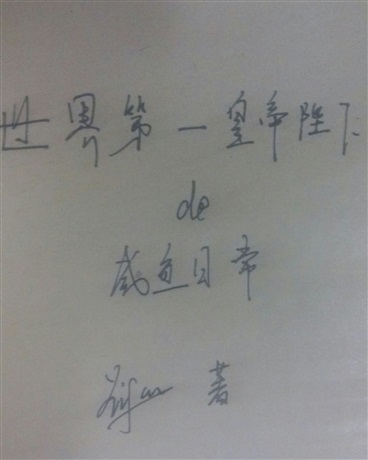 世界第一皇帝陛下
de
咸鱼日常
著